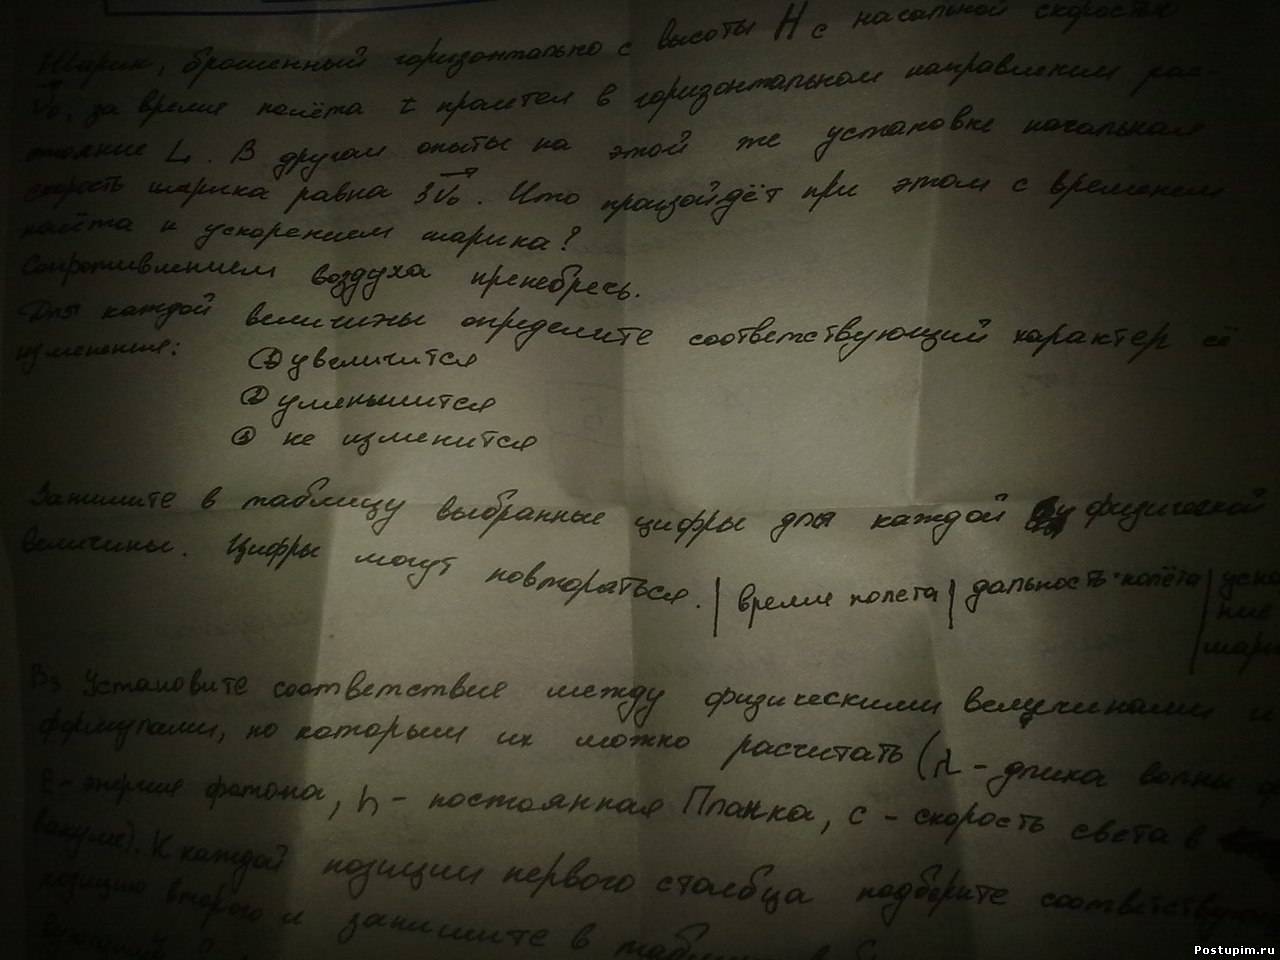 Шарик, брошенный горизонтально с высоты H с начальной скоростью
v₀, за время полёта t пролетел в горизонтальном направлении рас-
тояние L. В другом опыты на этой же установке начальная
скорость шарика равна 3v₀. Что произойдёт при этом с временем
полёта и ускорением шарика?
Сопротивлением воздуха пренебречь.
Для каждой величины определите соответствующий характер её
изменения:
① увеличится
② уменьшится
③ не изменится
Запишите в таблицу выбранные цифры для каждой физической
величины. Цифры могут повторяться. | время полета | дальность полёта | уско
ние
шари
B3 Установите соответствие между физическими величинами и
формулами, по которым их можно расчитать (λ - длина волны ф
E - энергия фотона, h - постоянная Планка, c - скорость света в
вакууме). К каждой позиции первого столбца подберите соответствую
позицию второго и запишите в
Postupim.ru